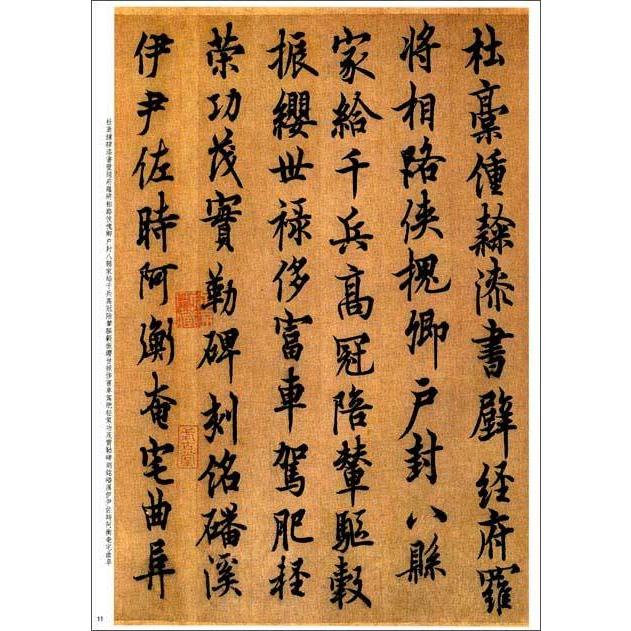 杜稾鍾隸漆書壁經府羅
將相路俠槐卿户封八縣
家給千兵高冠陪輦驅轂
振纓世禄侈富車駕肥輕
策功茂實勒碑刻銘磻溪
伊尹佐時阿衡奄宅曲阜
杜稾鍾隸漆書壁經府羅將相路俠槐卿户封八縣家給千兵高冠陪輦驅轂振纓世禄侈富車駕肥輕策功茂實勒碑刻銘磻溪伊尹佐時阿衡奄宅曲阜
11